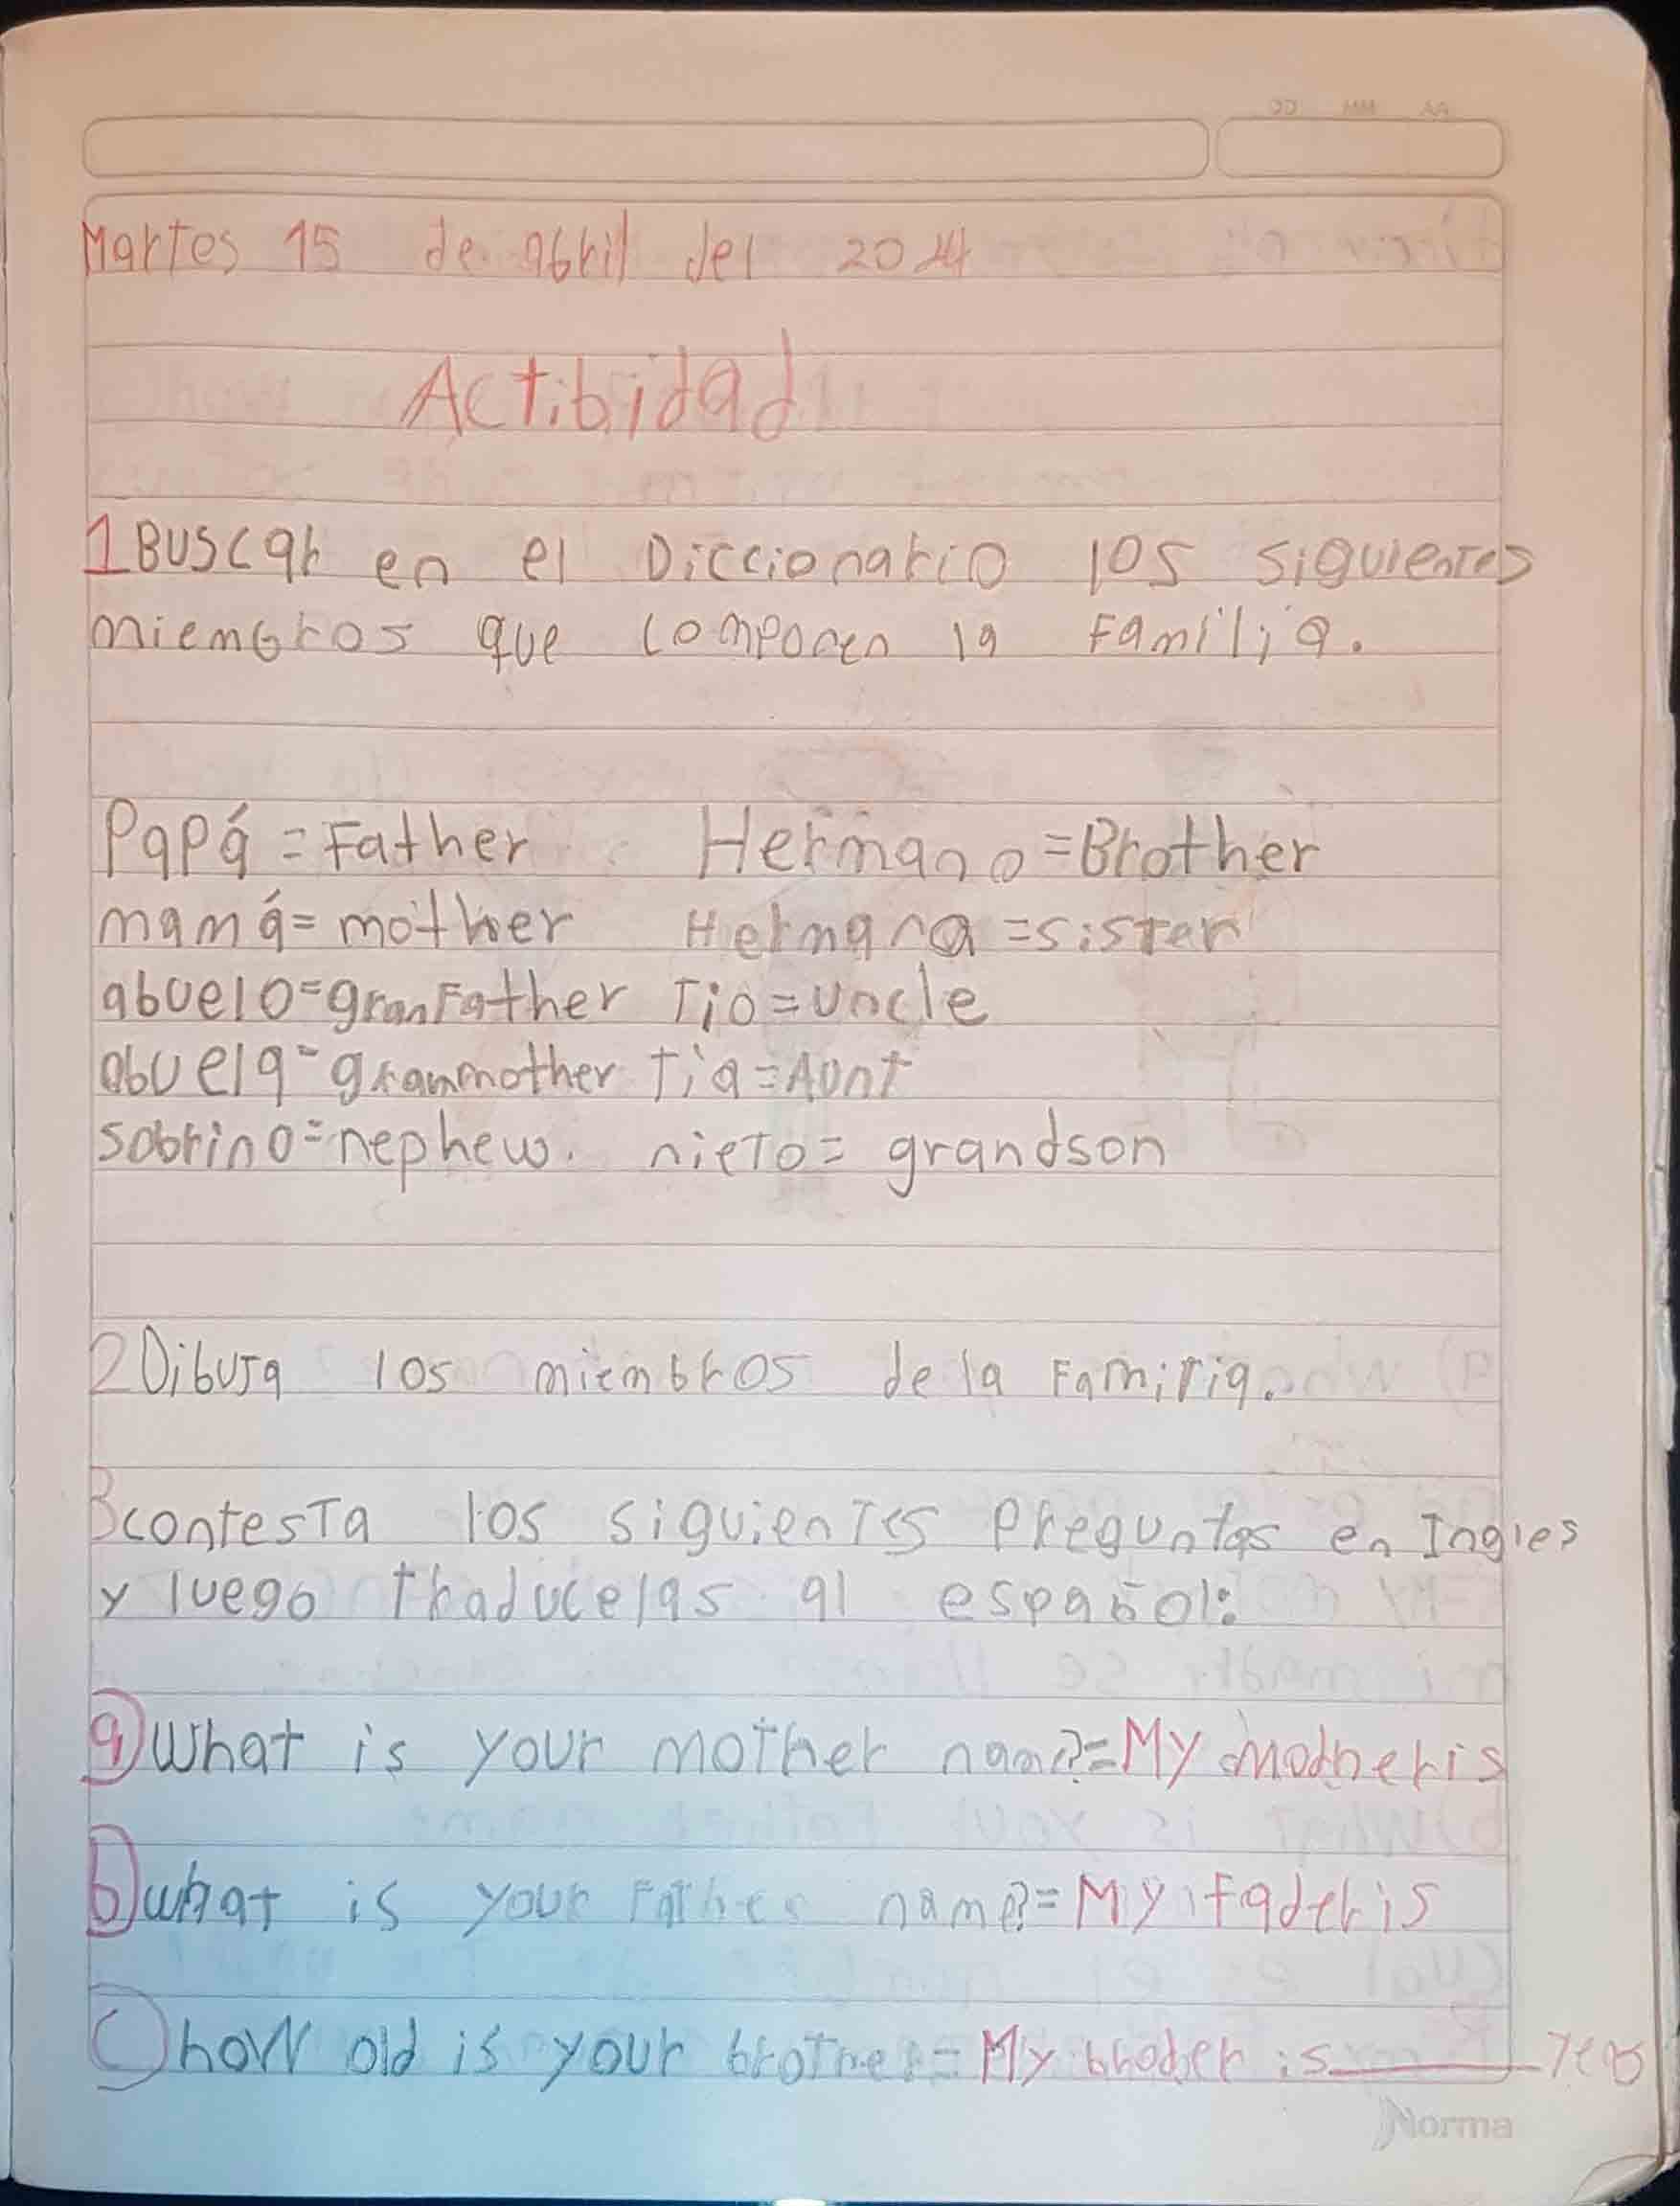 AA MM CC
Martes 15 de abril del 2014
Actibidad
1 Buscar en el Diccionario los siguientes
miembros que componen la Familia.
Papá = Father Hermano = Brother
mamá = mother Hermana = sister
abuelo = granFather Tio = uncle
abuela = granmother tia = Aunt
sobrino = nephew. nieto = grandson
2 Dibuja los miembros de la Familia.
3 contesta los siguientes preguntas en Ingles
y luego traducelas al español:
a) What is your mother name? = My motheris
b) what is your Father name? = My faderis
c) how old is your brother = My broder is ______
Norma